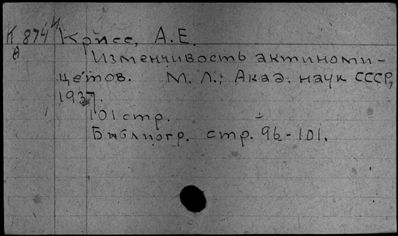 К 874 и Крисс, А.Е.
А
Изменчивость актиноми-
цетов. М. Л.; Акад. наук СССР,
1937.
101 стр.
Библиогр. стр. 96-101.